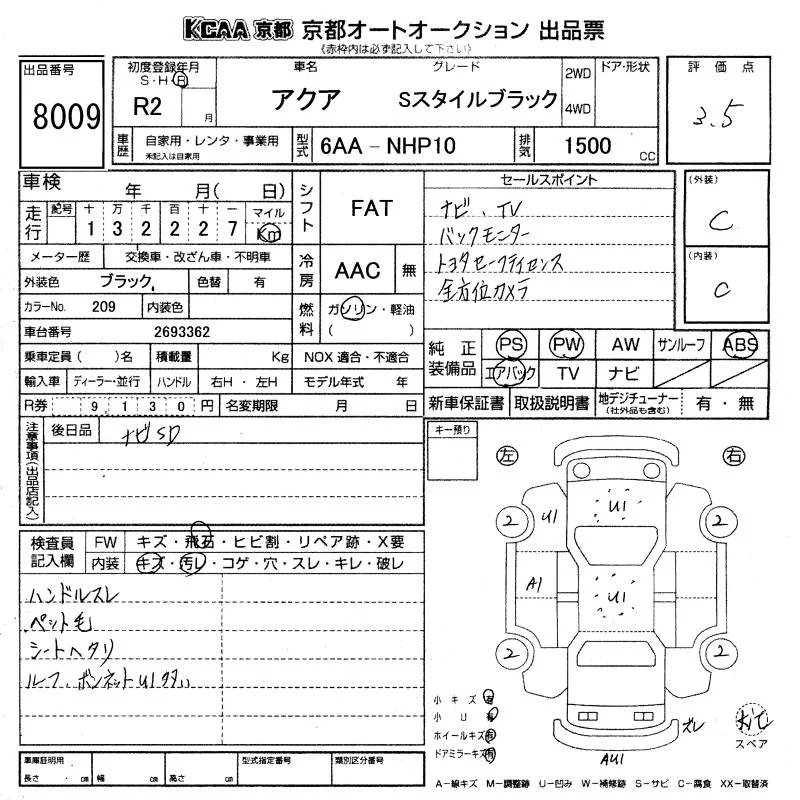 KCAA 京都 京都オートオークション 出品票
《赤枠内は必ず記入して下さい》
出品番号
8009
初度登録年月
S・H・R
R2 月
車名
アクア
グレード
Sスタイルブラック
2WD
4WD
ドア・形状
評価点
3.5
車歴
自家用・レンタ・事業用
未記入は自家用
型式
6AA－NHP10
排気
1500 CC
車検 年 月( 日)
走行
記号 十 万 千 百 十 一 マイル
1 3 2 2 2 7 Km
メーター歴 交換車・改ざん車・不明車
外装色 ブラック 色替 有
カラーNo. 209 内装色
車台番号 2693362
乗車定員( )名 積載量 Kg NOX 適合・不適合
輸入車 ディーラー・並行 ハンドル 右H・左H モデル年式 年
R券 9,130円 名変期限 月 日
シフト FAT
冷房 AAC 無
燃料 ガソリン・軽油
( )
セールスポイント
ナビ、TV
バックモニター
トヨタセーフティセンス
全方位カメラ
(外装)
C
(内装)
C
純正装備品
PS PW AW サンルーフ ABS
エアバック TV ナビ
新車保証書 取扱説明書 地デジチューナー
(社外品も含む)
有・無
注意事項(出品店記入)
後日品 ナビSD
キー預り
左 右
検査員記入欄
FW キズ・飛石・ヒビ割・リペア跡・X要
内装 キズ・汚レ・コゲ・穴・スレ・キレ・破レ
ハンドルスレ
ペット毛
シートヘタリ
ルーフ、ボンネットU1多い
U1
U1
A1
U1
2
2
2
2
ズレ
AU1
小キズ 有
小U 有
ホイールキズ 有
ドアミラーキズ 有
スペア
車庫証明用
長さ . cm 幅 cm 高さ . cm
型式指定番号
類別区分番号
A－線キズ M－調整跡 U－凹み W－補修跡 S－サビ C－腐食 XX－取替済